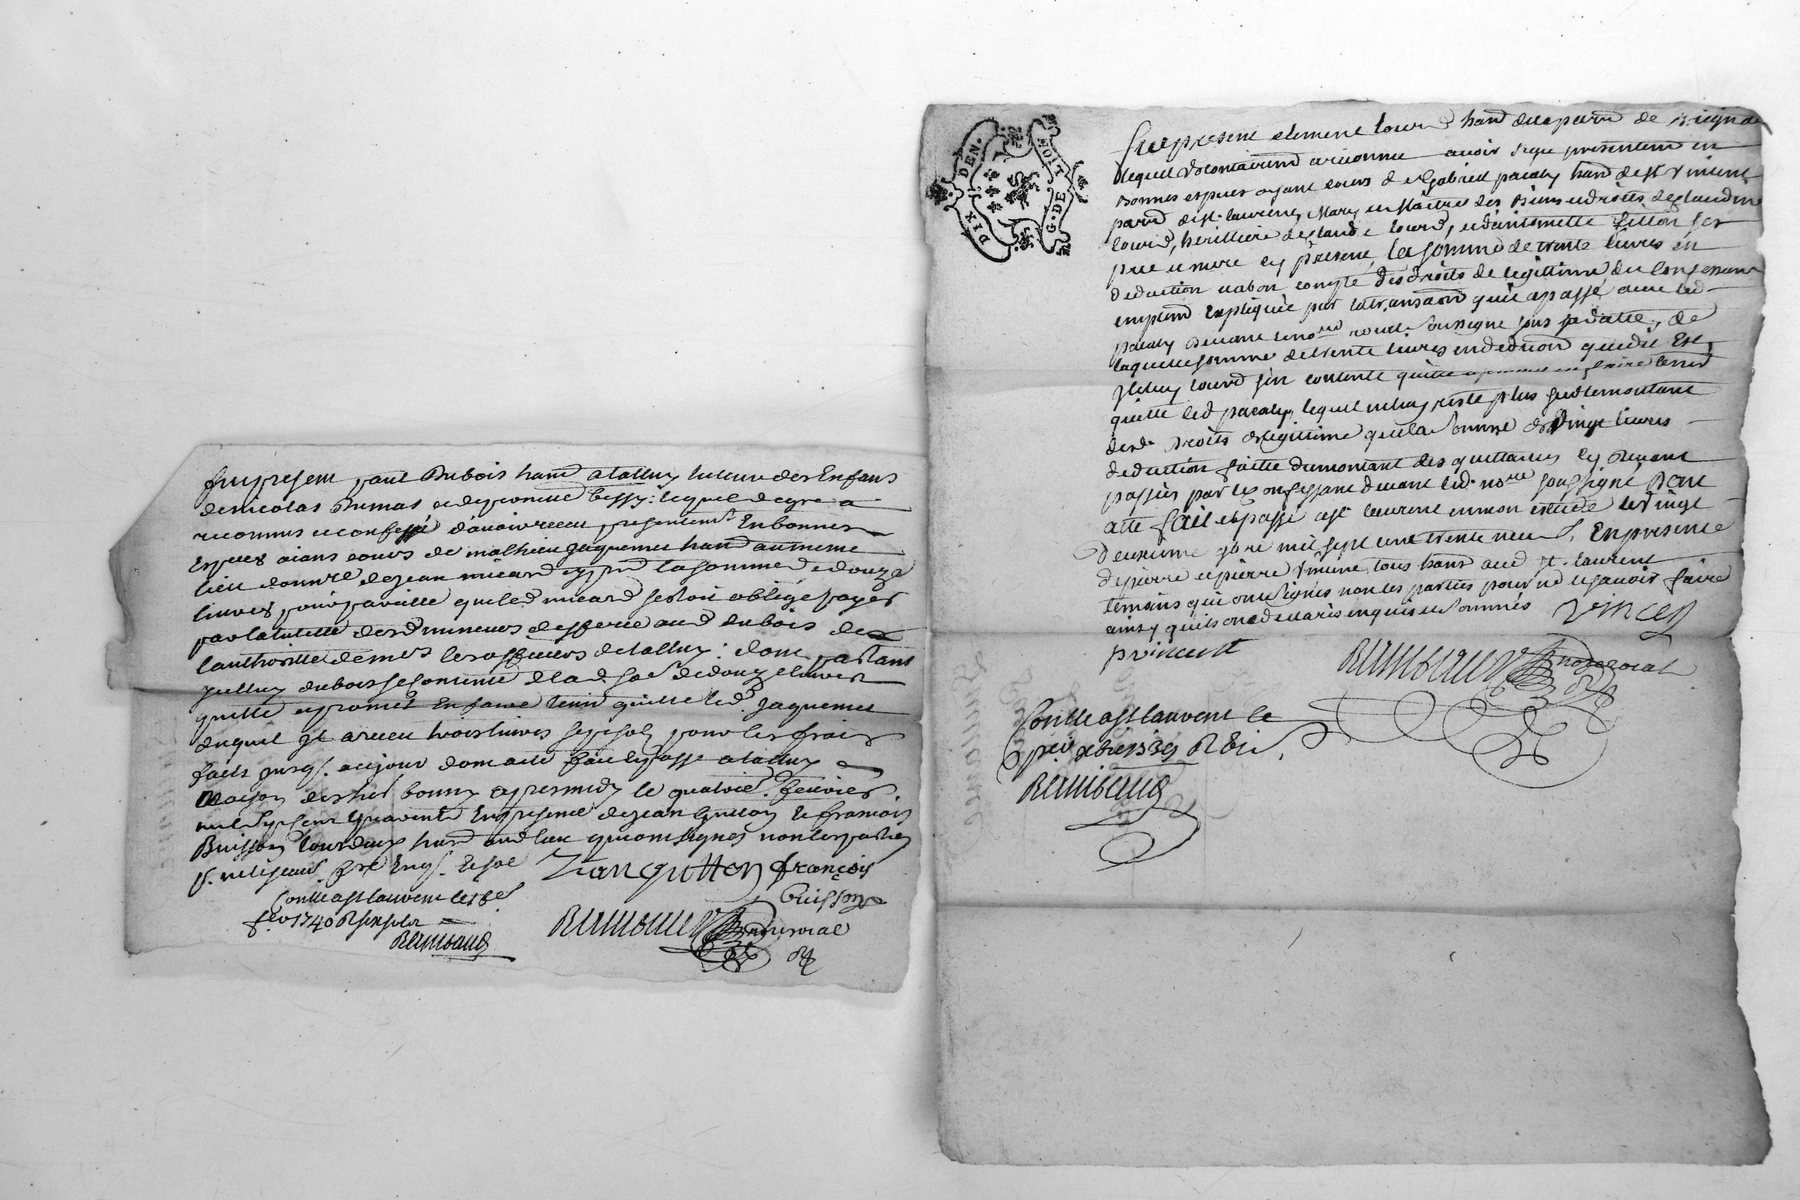 fut present paul Dubois hant a talluy tuteur des Enfans
de nicolas thomas et de pierrette bessy: lequel de gre a
reconnu et confessé d'avoir receu presentem.t En bonnes
Especes aians cours de mathieu jaquemet hant au meme
lieu donnee de jean micard cy pnt la somme de douze
livres, pour pareille que led. micard s'estoit obligé payer
par la tutelle desd mineurs
l'authorité de mrs les officiers de talluy: dont partant
jcelluy dubois se contente de lad. so.e de douze livres
quitte et promet En faire tenir quitte led. jaquemet
duquel jl a receu trois livres sept sols pour les frais
faits jusqs. acejour dont acte fait et passé a talluy
maison des hers bonny apres midy le quatorie.. fevrier
mil sept cent quarante En presence de jean guitton et francois
Buisson tous deux hant aud lieu qui ont signés non les parties
p. ne scavoir
jean guitton françois
buisson
Conllé a st laurent le 18e
fev 1740 R six sols
Raimbaud
Raimbaud
nore royal
DIX DEN.
G.DE LION
fut present clement lourd hant de la parr.e de
lequel volontairemt a reconnu avoir reçu presentemt en
bonnes especes ayant cours de sr Gabriel pacaly hant de st vincent
parr.e de st. laurent, Mary et Maitre des Biens et droits de claudine
lourd, heritiere de claude lourd, et d'antoinette fillon ses
pere et mere cy present, la somme de trente livres en
deduction et a bon compte des droits de legittime du confessant
emplemt expliquée par la transaon qu'il a passé avec led.
pacaly devant le nore royal soussigné sous sa datte, de
laquelle somme de trente livres en deduon que dit Est,
jceluy lourd s'en contente quitte et promet en faire tenir
quitte led pacaly, lequel ne luy reste plus sur le montant
desd. droits de legittime que la somme de Vingt livres
deduction faitte du montant des quittances cy devant
passées par le confessant devant led. nore soussigné Dont
acte fait et passé a st laurent en mon etude le Vingt
deuxieme xbre mil sept cent trente neuf, En presence
de pierre et pierre Vincent tous hant aud st. laurent
temoins qui ont signés non les parties pour ne scavoir faire
ainsy qu'ils ont declaré enquis et sommés
vincent
p vincent
Raimbaud
nore royal
Conllé a st laurent le
Raimbaud